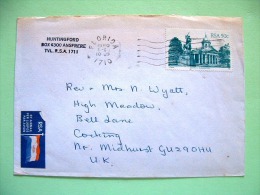 HUNTINGFORD
BOX 6300 ANSFRERE
TVL. R.S.A. 1711
FLORIDA
1710
RSA 50c
Rev & Mrs. N. Wyatt,
High Meadow,
Bell Lane
Cocking
Nr. Midhurst GU29 0HU
U.K.
RSA